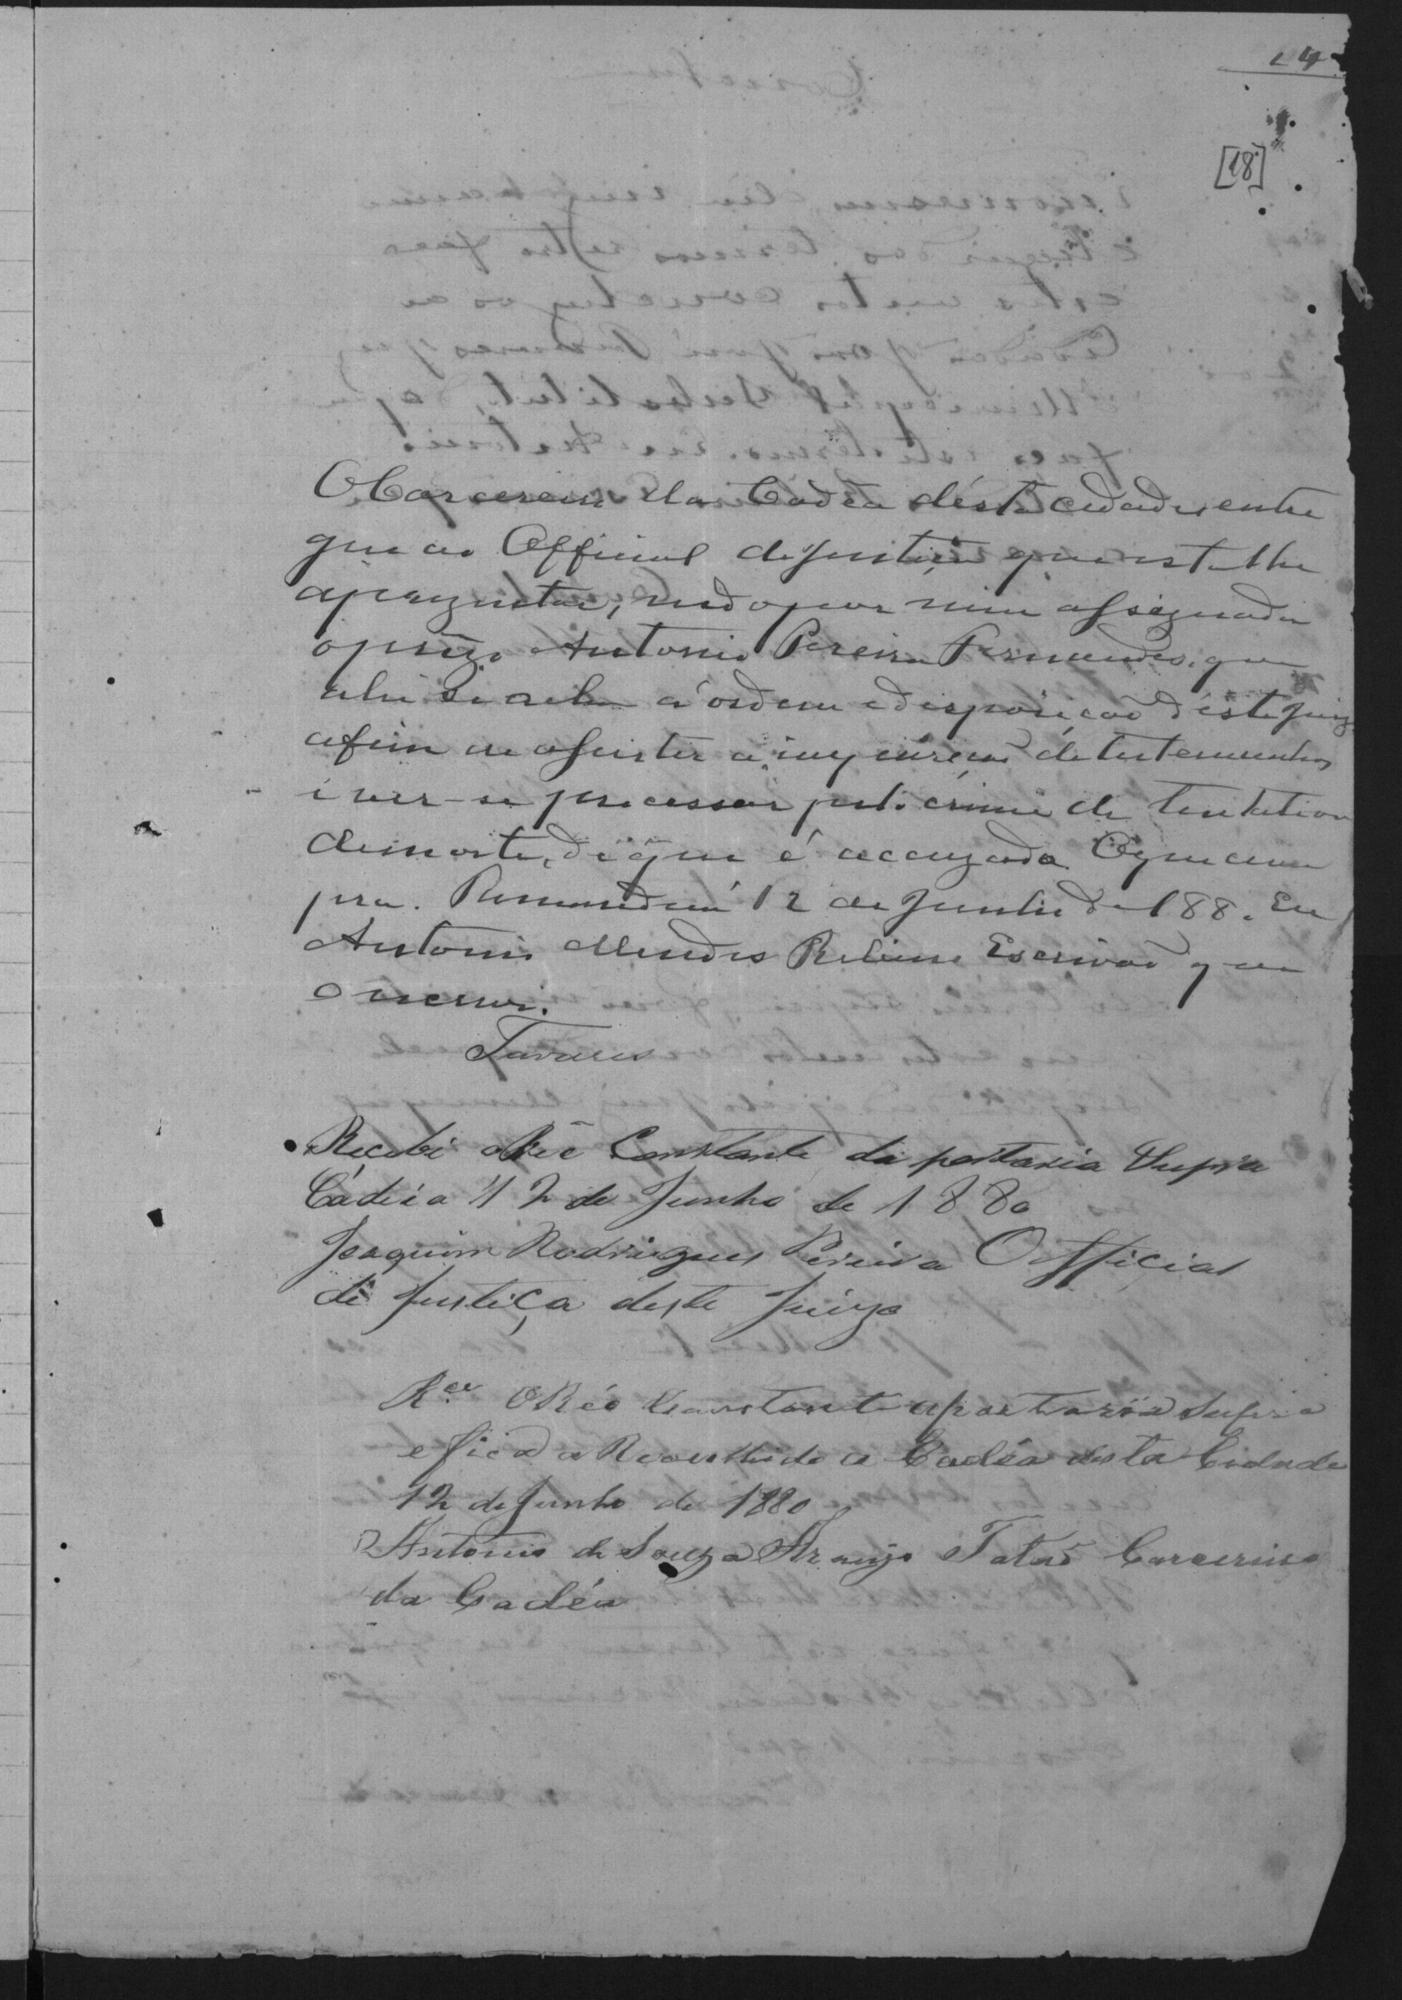 24
[18]
O Carcereiro da Cadêa désta cidade, entre
gue ao Official de Justiça que esta lhe
aprezentar, indo por mim assignada
o prezo Antonio Pereira Fernandes, que
ahi se acha á ordem e disposição d'éste Juizo
afim de assistir a inquirição de testemunhas
e ver-se processar pelo crime de tentativa
de morte, de que é accuzado. O que cum
pra. 12 de Junho de 188. Eu
Antonio Mendes Escrivão que
o escrevi.
Tavares
Recebi o Réo Constante da portaria Supra
Cadeia 12 de Junho de 1880
Joaquim Rodrigues Pereira Official
de Justiça deste Juizo
R.ce O Réo Constante a portaria Supra
e fica Recolhido a Cadéa desta Cidade
12 de Junho de 1880
Antonio de Souza Araujo Carcereiro
da Cadéa